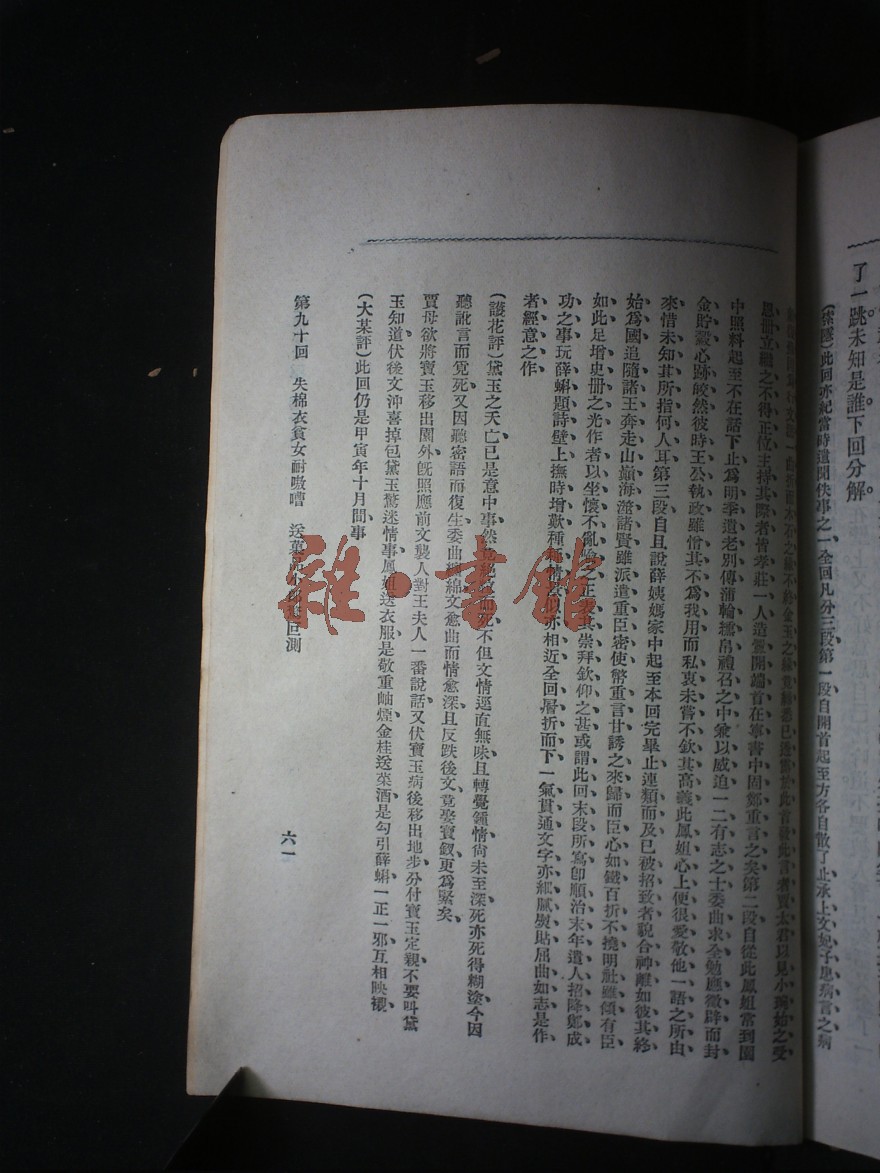 了一跳未知是誰下回分解
(索隱)此回亦紀當時遺聞佚事之一全回凡分三段第一段自開首起至方各自散了止承上文妃子患病言之病
恩冊立繼之不得正位主持其際者皆孝莊一人造置開端首在寧書中固鄭重言之矣第二段自從此鳳姐常到園
中照料起至不在話下止爲明季遺老別傳蒲輪攜帛禮召之中兼以威迫一二有志之士委曲求全勉應徵辟而封
金貯穀心跡皎然彼時王公執政雖惜其不爲我用而私衷未嘗不欽其高義此鳳姐心上便很愛敬他一語之所由
來惜未知其所指何人耳第三段自且說薛姨媽家中起至本回完畢止連類而及已被招致者貌合神離如彼其終
始爲國追隨諸王奔走山巔海澨諸賢雖派遣重臣密使幣重言甘誘之來歸而臣心如鐵百折不撓明社雖傾有臣
如此足增史冊之光作者以坐懷不亂喻之正其崇拜欽仰之甚或謂此回末段所寫卽順治末年遣人招降鄭成
功之事玩薛蝌題詩壁上撫時增歎種種情亦相近全回層折而下一氣貫通文字亦細膩熨貼屈曲如志是作
者經意之作
(護花評)黛玉之夭亡已是意中事然死不但文情逕直無味且轉覺鍾情尙未至深死亦死得糊塗今因
聽訛言而覓死又因聽密語而復生委曲纏綿文愈曲而情愈深且反跌後文竟娶寶釵更爲緊矣
賈母欲將寶玉移出園外旣照應前文襲人對王夫人一番說話又伏寶玉病後移出地步分付寶玉定親不要叫黛
玉知道伏後文沖喜掉包黛玉驚迷情事鳳姐送衣服是敬重岫煙金桂送菜酒是勾引薛蝌一正一邪互相映襯
(大某評)此回仍是甲寅年十月間事
第九十回 失棉衣貧女耐嗷嘈 送菓品小郎驚叵測
六一
雜·書館